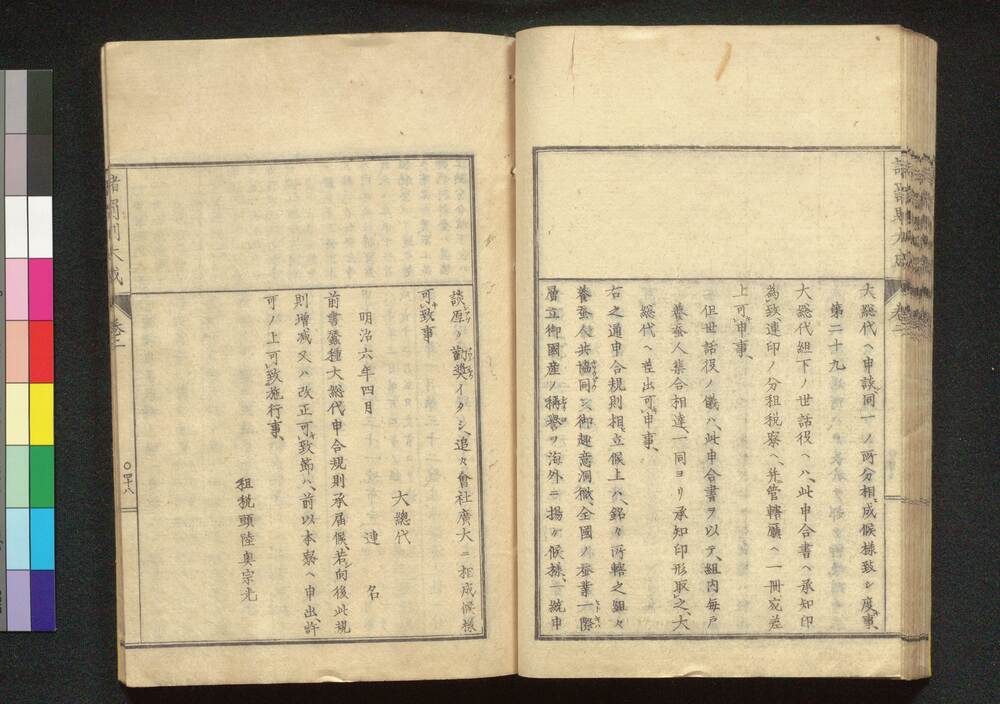 大総代ヘ申談、同一ノ所分相成候様致シ度事、
第二十九
大総代組下ノ世話役ヘハ、此申合書ヘ承知印
為致連印ノ分租税寮ヘ、并管轄廳ヘ一冊宛差
上可申事、
但世話役ノ儀ハ、此申合書ヲ以テ、組内毎戸
養蚕人集合相達、一同ヨリ承知印形取之、大
総代ヘ差出可申事、
右之通申合規則相立候上ハ、銘々所轄之組々
養蚕人共協同シ、御趣意洞徹、全國ノ蚕業一際
層立御國産ノ稱誉ヲ海外ニ揚ケ候様、一統申
談厚ク勸奬イタシ、追々會社廣大ニ相成候様
可致事
明治六年四月
大總代
連名
前書蚕種大総代申合規則承届候、若向後此規
則増减又ハ改正可致節ハ、前以本寮ヘ申出、許
可ノ上可致施行事、
租税頭陸奥宗光
諸罰則大成
巻二
〇四十八